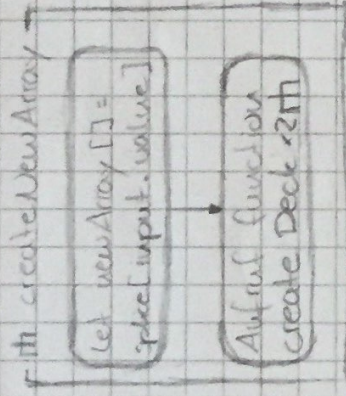 fn createNewArray
let newArray[] =
input.value]
Aufruf function
create Deck